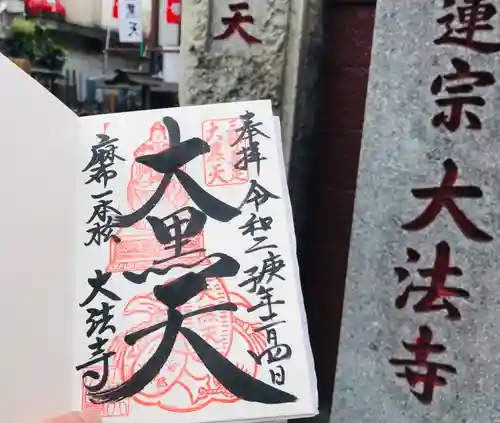 奉拝 令和二庚子年二月四日
大黒天
大黒天
麻布一本松
大法寺
天
黒天
蓮宗 大法寺